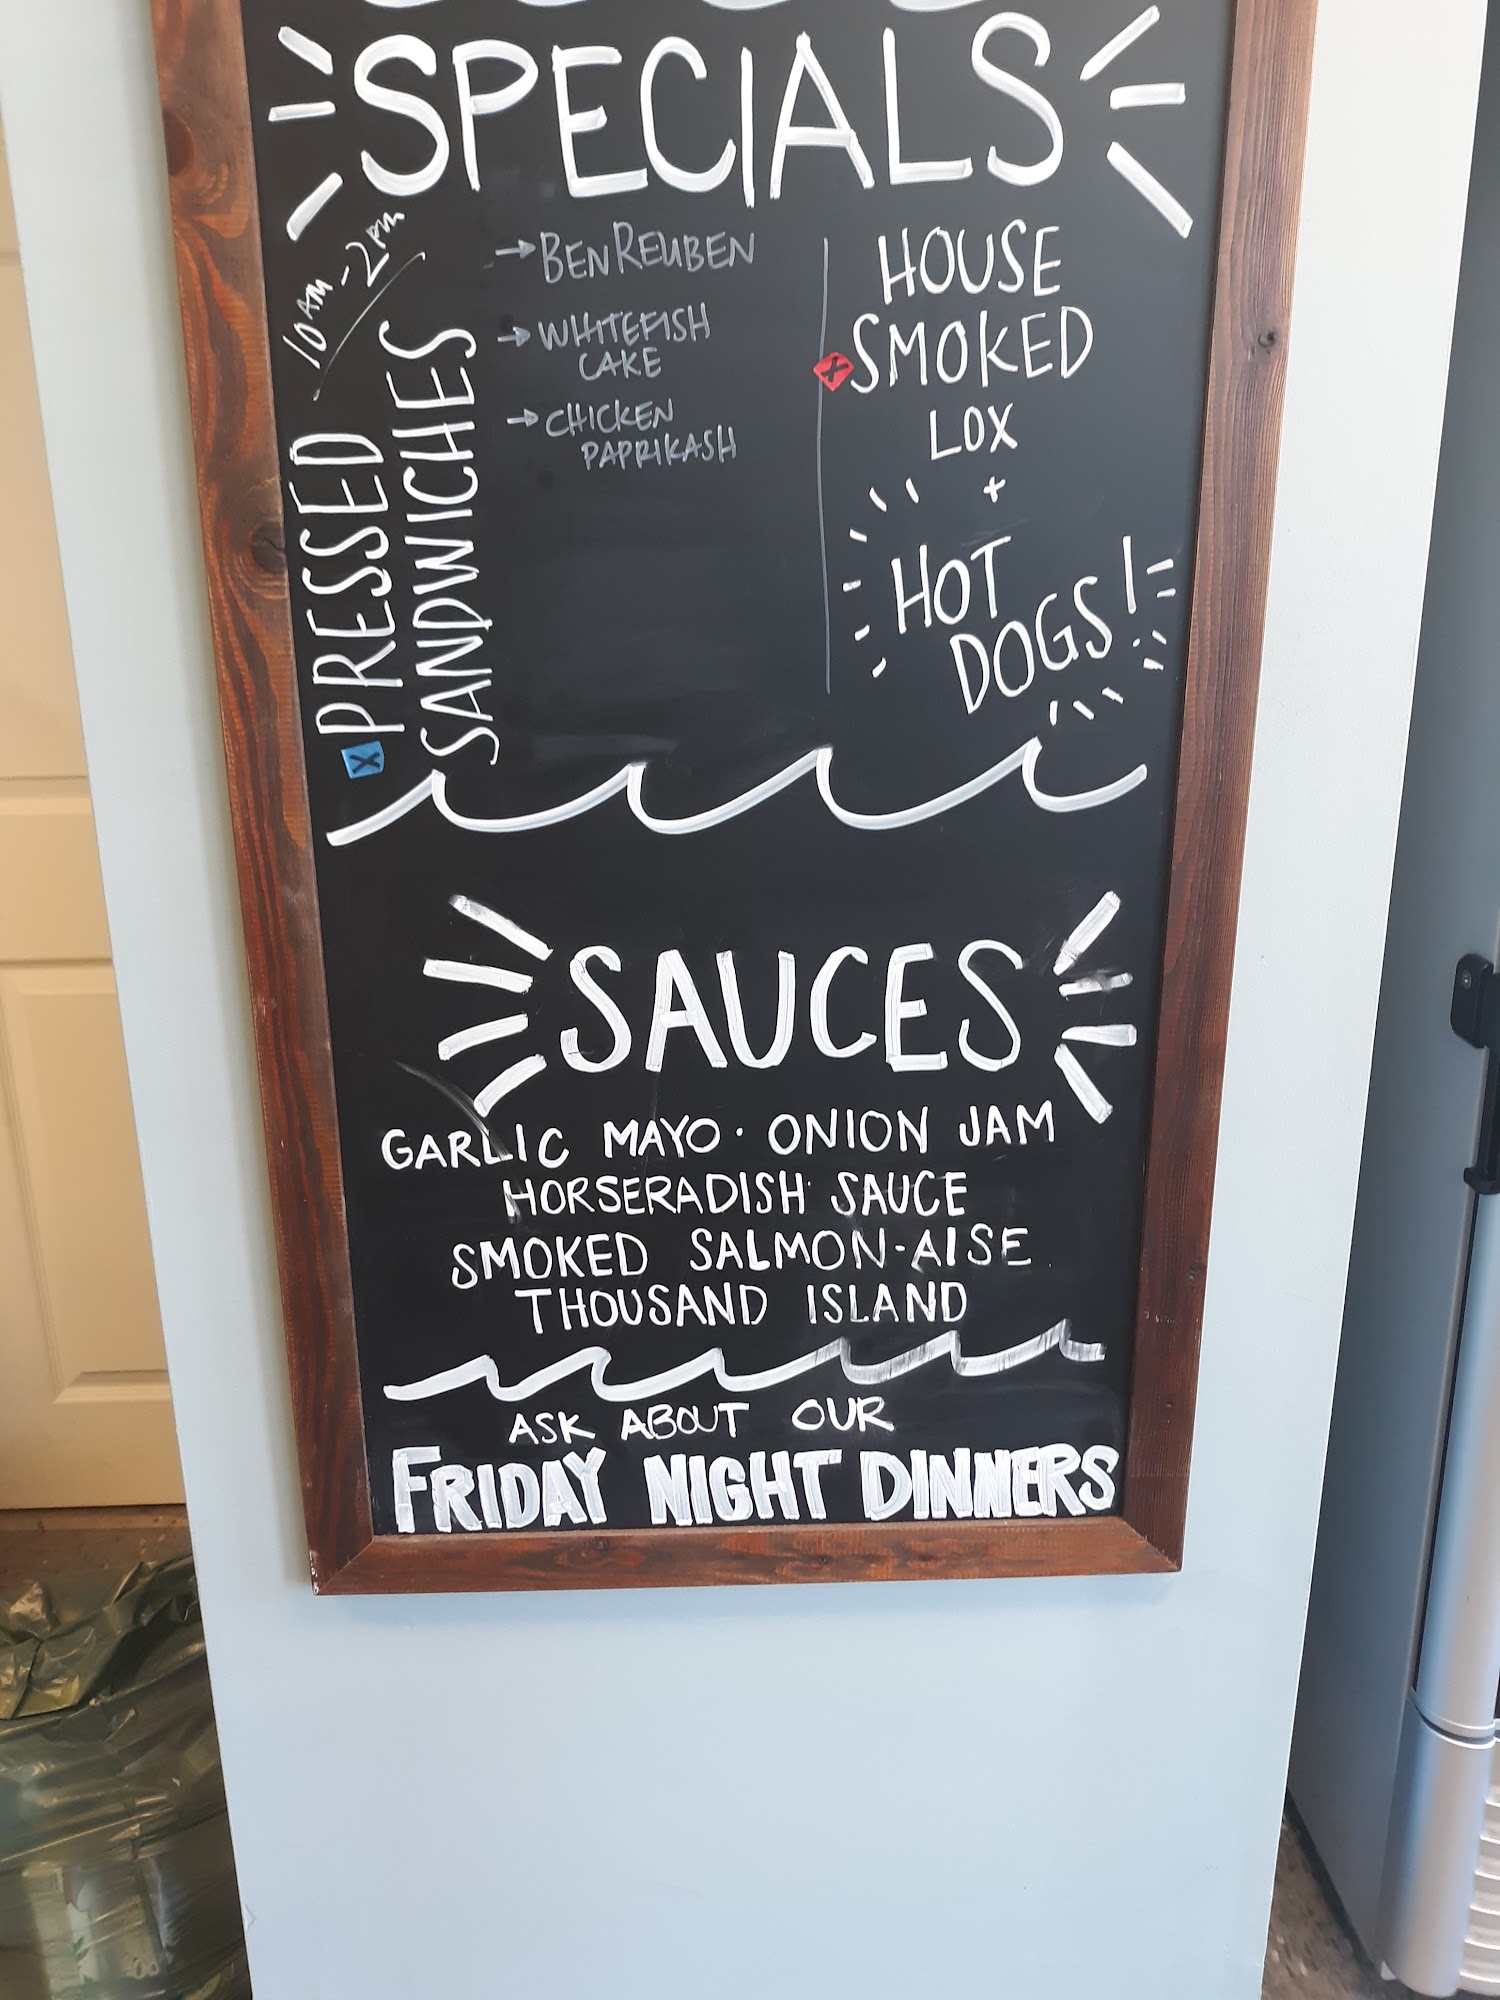 SPECIALS
10AM-2PM
X PRESSED
SANDWICHES
→BENREUBEN
→WHITEFISH
CAKE
→CHICKEN
PAPRIKASH
HOUSE
X SMOKED
LOX
+
HOT
DOGS!
SAUCES
GARLIC MAYO · ONION JAM
HORSERADISH SAUCE
SMOKED SALMON-AISE
THOUSAND ISLAND
ASK ABOUT OUR
FRIDAY NIGHT DINNERS